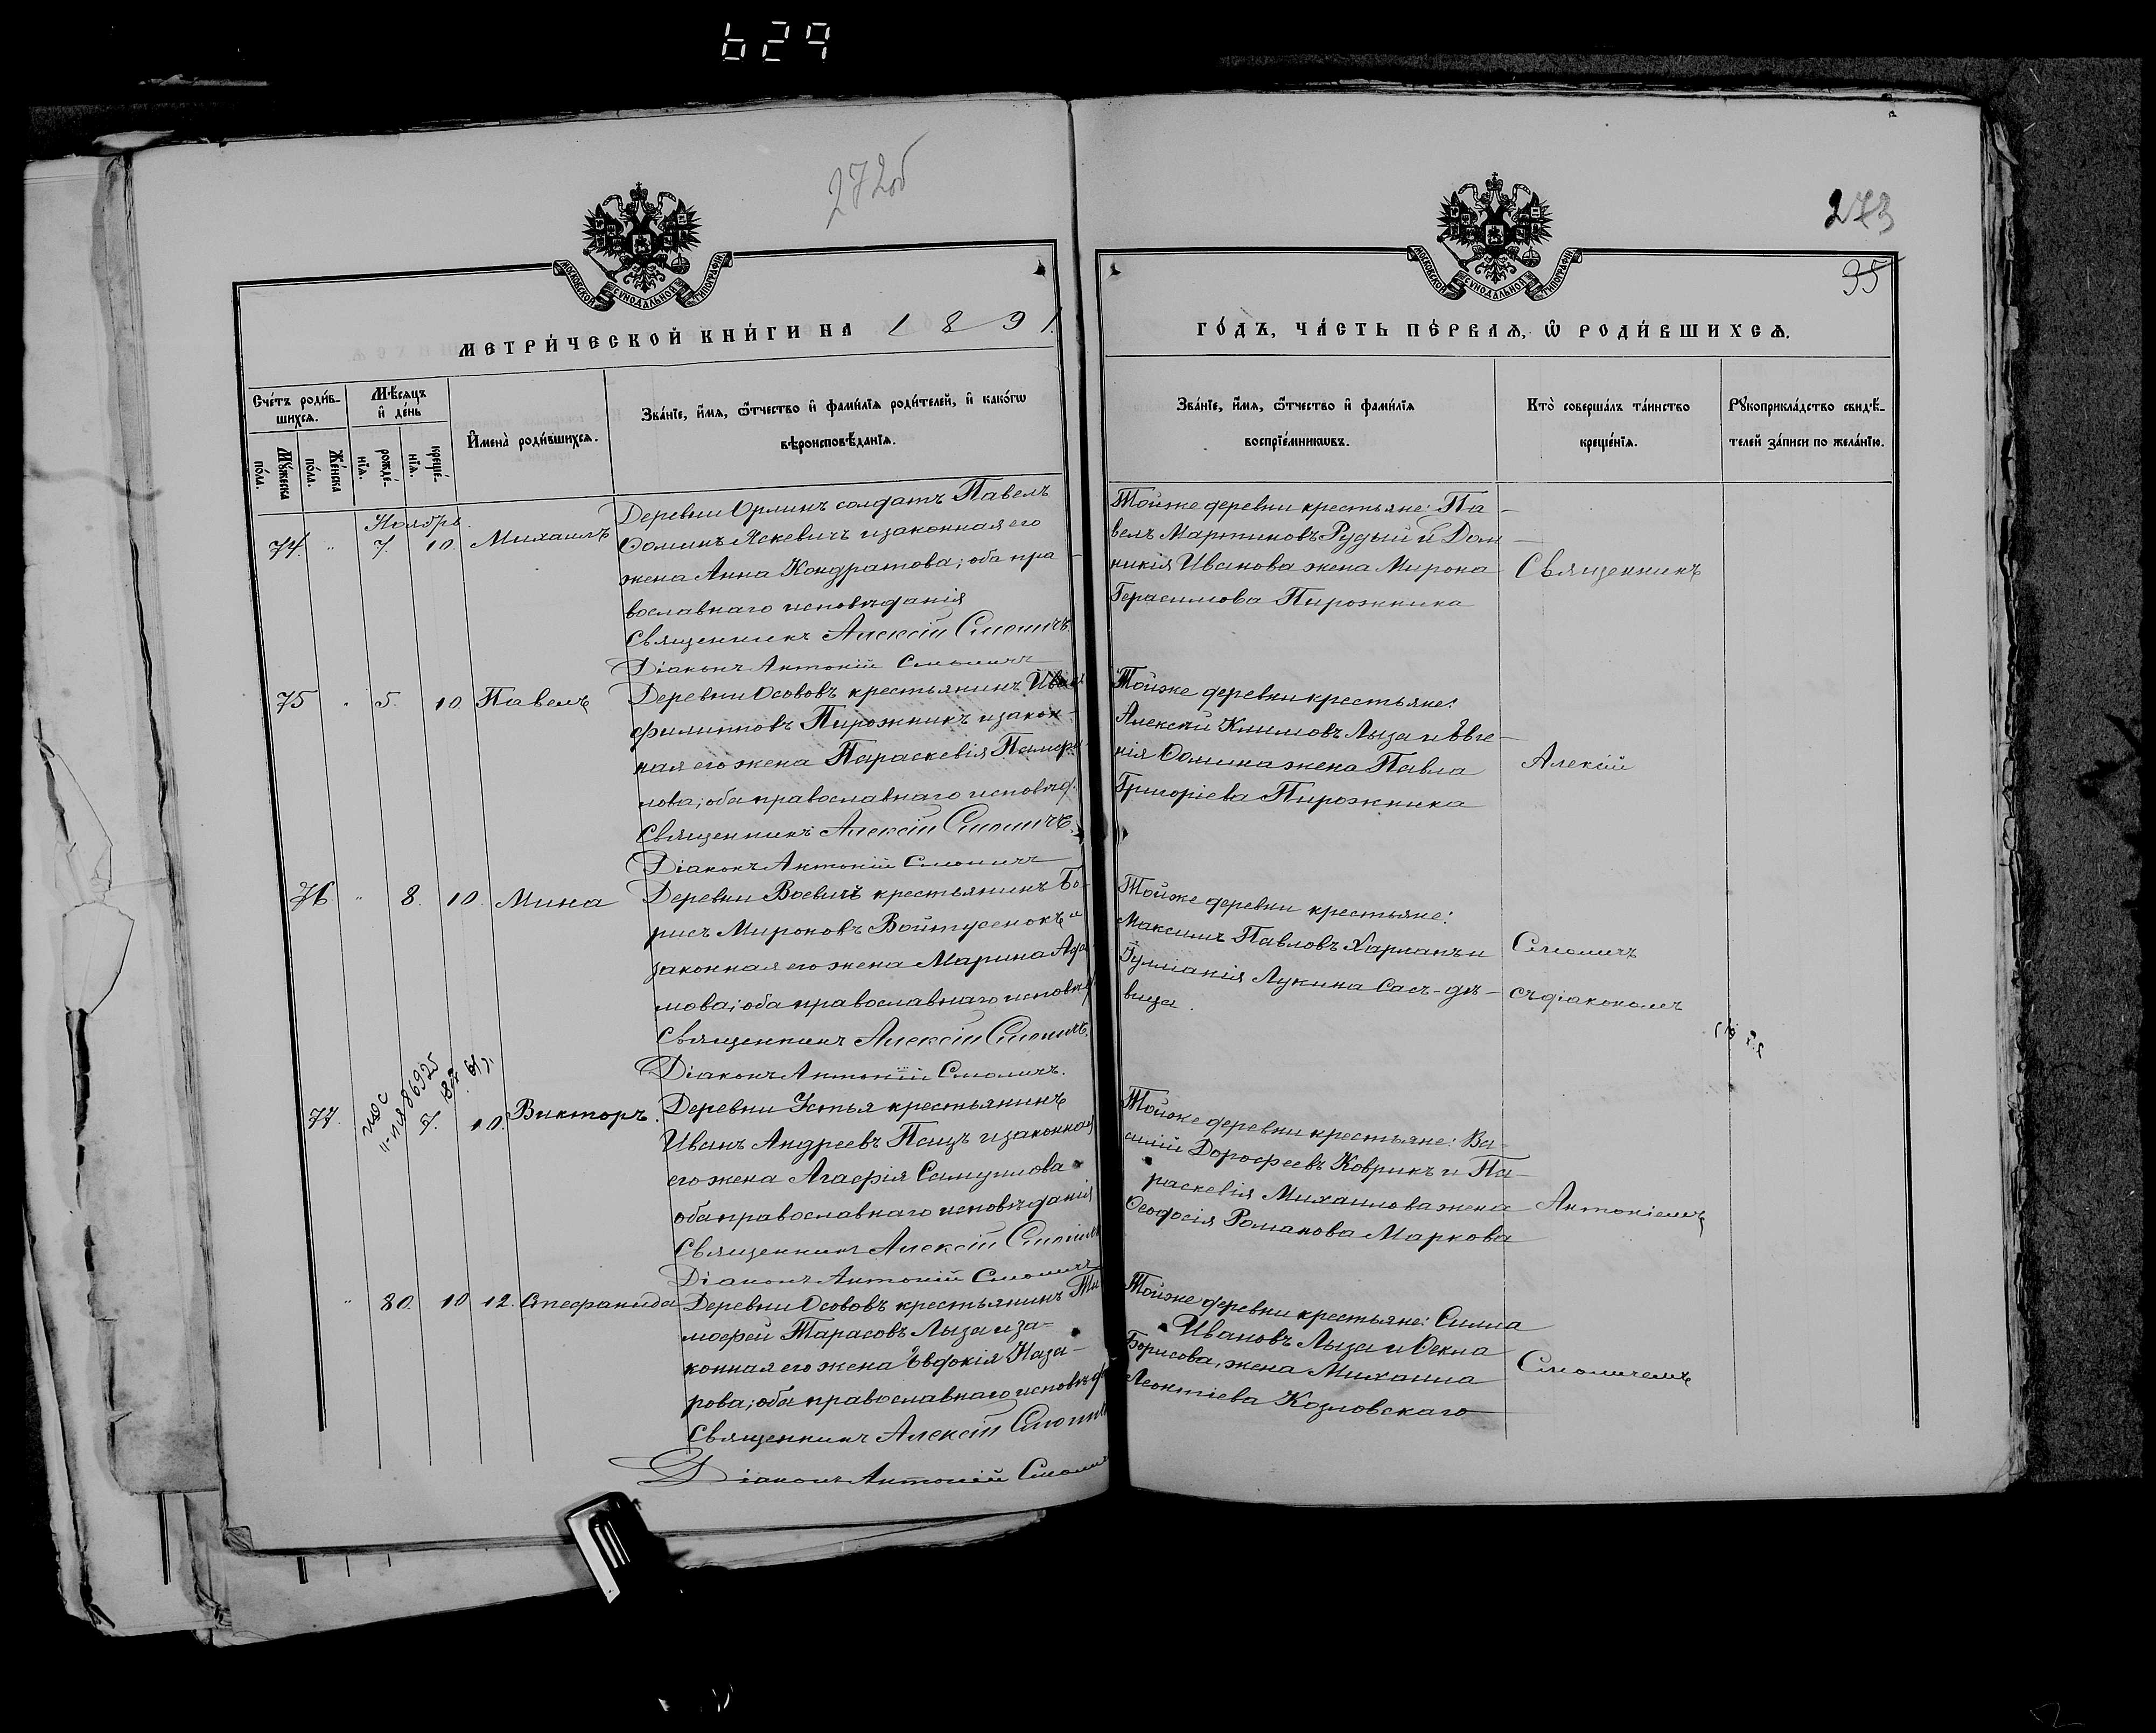 629
272об
273
35
МОСКОВСКОЙ СѴНОДАЛЬНОЙ ТИПОГРАФІИ
МОСКОВСКОЙ СѴНОДАЛЬНОЙ ТИПОГРАФІИ
МЕТРИ́ЧЕСКОЙ КНИ́ГИ НА 1891
ГО́ДЪ, ЧА́СТЬ ПЕ́РВАѦ, Ѿ РОДИ́ВШИХСѦ.
Сче́тъ роди́в-
шихсѧ.
Мꙋ́жеска
по́ла.
Же́нска
по́ла.
Мѣ́сѧцъ
и҆ де́нь
рожде́-
нїѧ.
креще́-
нїѧ.
И҆мена̀ роди́вшихсѧ.
Зва́нїе, и҆́мѧ, ѻ҆́тчество и҆ фами́лїѧ роди́телей, и҆ како́гѡ
вѣроисповѣ́данїѧ.
Зва́нїе, и҆́мѧ, ѻ҆́тчество и҆ фами́лїѧ
воспрїе́мникѡвъ.
Кто̀ соверша́лъ та́инство
креще́нїѧ.
Рꙋкоприкла́дство свидѣ́-
телей за́писи по жела́нїю.
Ноябрь.
74. " 7. 10. Михаилъ
Деревни Орлинъ солдатъ Павелъ
Ѳоминъ Яскевичъ и законная его
жена Анна Кондратова; оба пра-
вославнаго исповѣданія
Священникъ Алексій Смоличъ.
Діаконъ Антоній Смоличъ
Тойже деревни крестьяне: Па-
велъ Мартиновъ Рудый и Дом-
никія Иванова жена Мирона
Герасимова Пирожника
Священникъ
75 " 5. 10. Павелъ
Деревни Осововъ крестьянинъ Иванъ
Филипповъ Пирожникъ и закон-
ная его жена Параскевія Памфи-
лова; оба православнаго исповѣд.
Священникъ Алексій Смоличъ.
Діаконъ Антоній Смоличъ
Тойже деревни крестьяне:
Алексѣй Климовъ Лыза и Евге-
нія Ѳомина жена Павла
Григоріева Пирожника
Алексій
76. " 8. 10. Мина
Деревни Воевичъ крестьянинъ Бо-
рисъ Мироновъ Войтусенокъ и
законная его жена Марина Ада-
мова; оба православнаго исповѣд.
Священникъ Алексій Смоличъ.
Діаконъ Антоній Смоличъ.
Тойже деревни крестьяне:
Максимъ Павловъ Харланъ и
Іуліанія Лукина Сасъ - дѣ-
вица.
Смоличъ
съ діакономъ
77. 5. 10. Викторъ.
Деревни Устья крестьянинъ
Иванъ Андреевъ Пащъ и законная
его жена Агафія Самуилова
оба православнаго исповѣданія
Священникъ Алексій Смоличъ
Діаконъ Антоній Смоличъ
Тойже деревни крестьяне: Ва-
силій Дорофеевъ Коврикъ и Па-
раскевія Михаилова жена
Ѳеодосія Романова Маркова
Антоніемъ
" 80. 10 12. Стефанида
Деревни Осововъ крестьянинъ Ти-
мофей Тарасовъ Лыза и за-
конная его жена Евдокія Наза-
рова; оба православнаго исповѣд.
Священникъ Алексій Смоличъ
Діаконъ Антоній Смоличъ
Тойже деревни крестьяне: Симма
Ивановъ Лыза и Ѳекла
Борисова, жена Михаила
Леонтіева Козловскаго
Смоличемъ